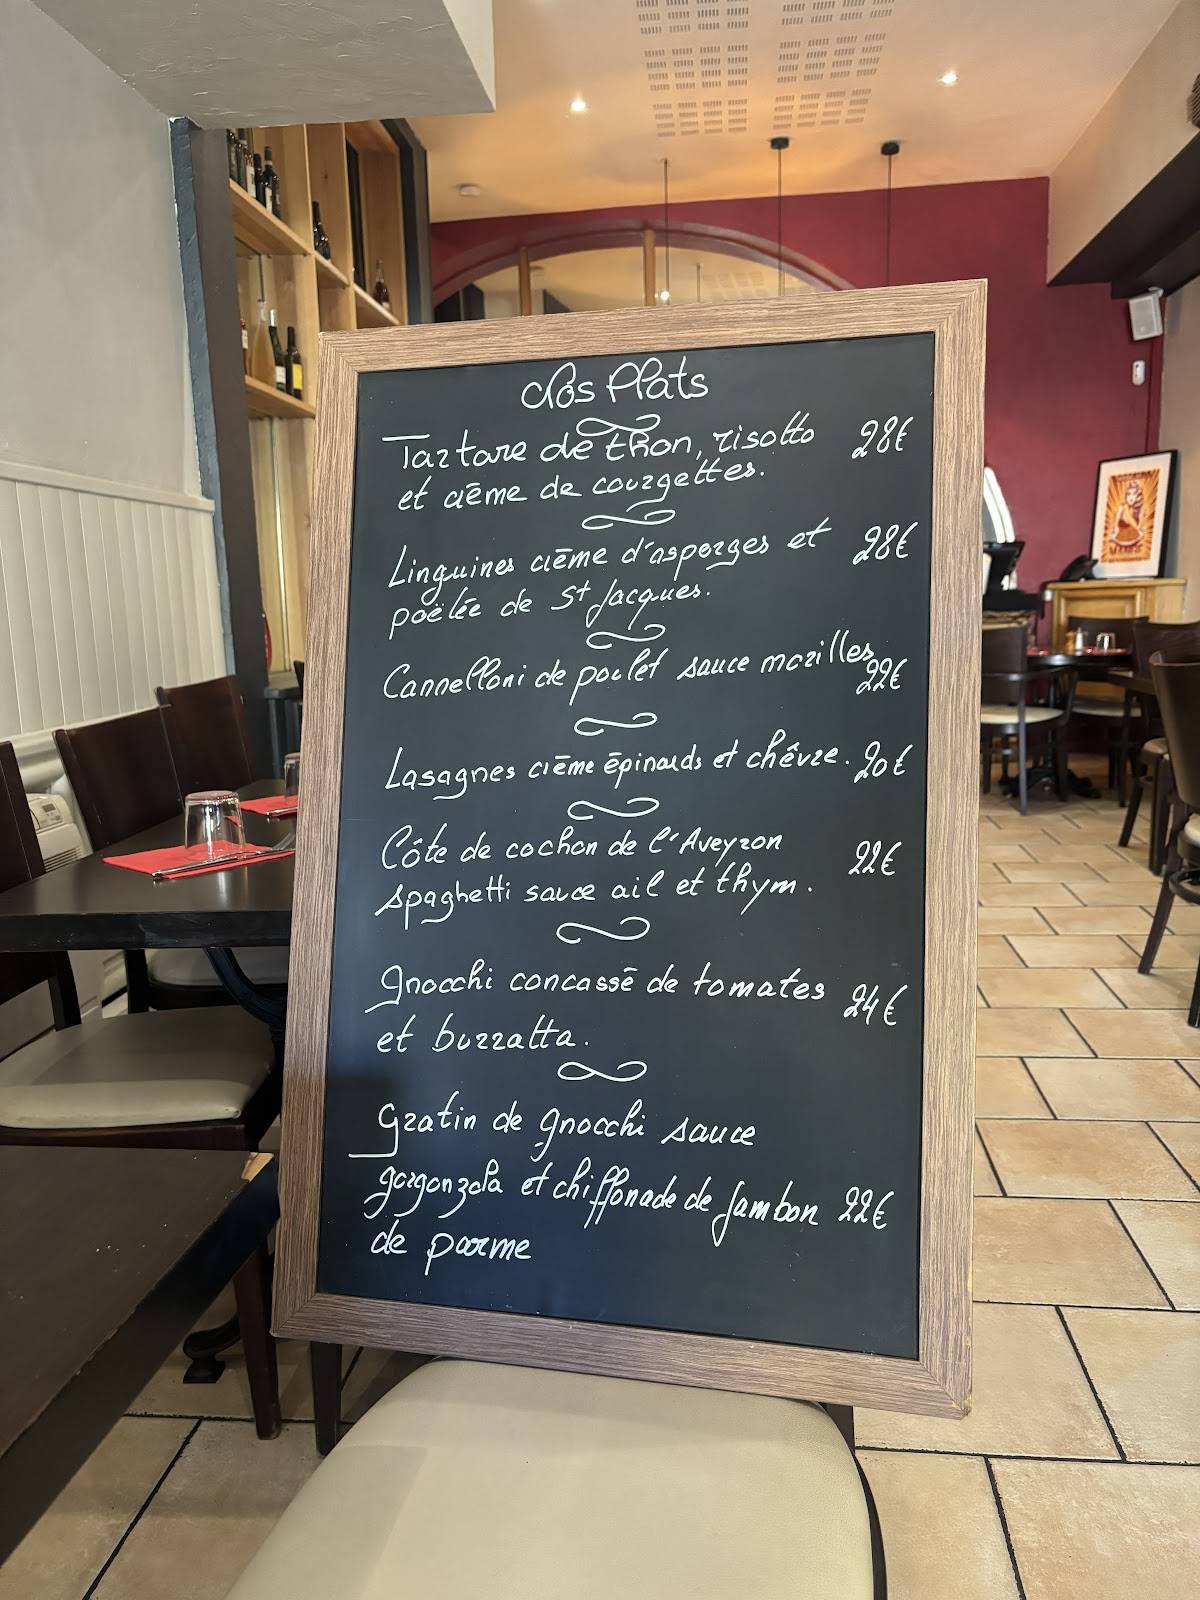 Nos Plats
Tartare de thon, risotto 28€
et crème de courgettes.
Linguines crème d'asperges et 28€
poëlée de St Jacques.
Cannelloni de poulet sauce morilles
22€
Lasagnes crème épinards et chêvre. 20€
Côte de cochon de l'Aveyron
spaghetti sauce ail et thym. 22€
Gnocchi concassé de tomates 24€
et burratta.
Gratin de gnocchi sauce
gorgonzola et chiffonade de jambon 22€
de parme